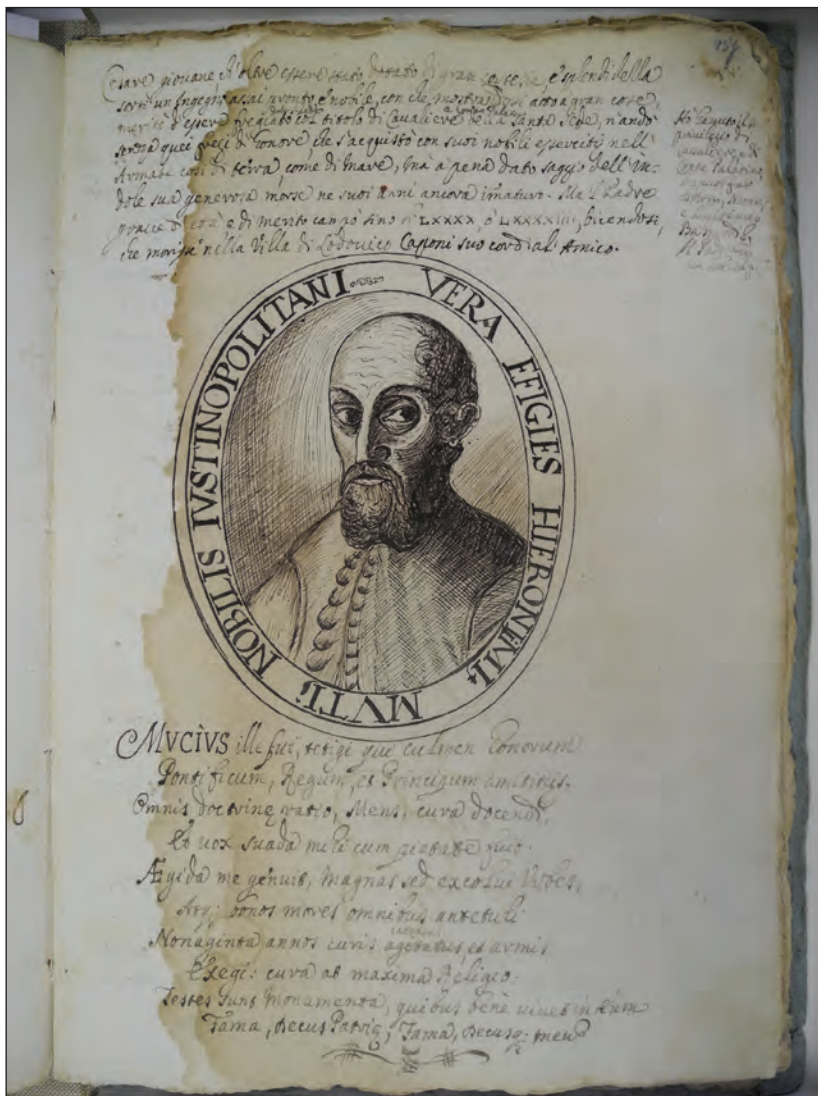 Cesare giovane ch'oltre essere stato dotato di gran cortesia, e splendidella
sortì un Ingegno assai pronto, e nobile, con che mostrandosi atto a gran cose,
meritò d'essere fregiato col titolo di Cavaliere della Santa Sede, n'andò
senza quei freggi d'honore che s'acquistò con suoi nobili esserciti nell
Armate così di terra, come di mare, mà a pena dato saggio dell'In=
dole sua generosa morse ne suoi anni ancora immaturo. Ma il Padre
grave d'età e di merito campò fino di LXXXX, ò LXXXXIII, dicendosi,
che morisse nella Villa di Lodovico Capponi suo cordial Amico.
Cavaliere, e di
Conte Palatino
VERA EFIGIES HIERONEMI, MVTI; NOBILIS IVSTINOPOLITANI
MVCIVS ille fui, tetigi que culmen honorum
Pontificum, Regum, et Principum amicitiis.
Omnis doctrine ratio, Mens, cura docendi,
Et uox suada mihi cum pietate fuit.
Ægida me genuit, magnas sed excolui Urbes,
Atq; bonos mores omnibus antetuli
Nonaginta annos curis agitatus et armis
Exegi: cura at maxima Religio.
Testes sunt monumenta, quibus bene uiuet in eum
Fama, decus Patriȩ, Fama, decusq; meum